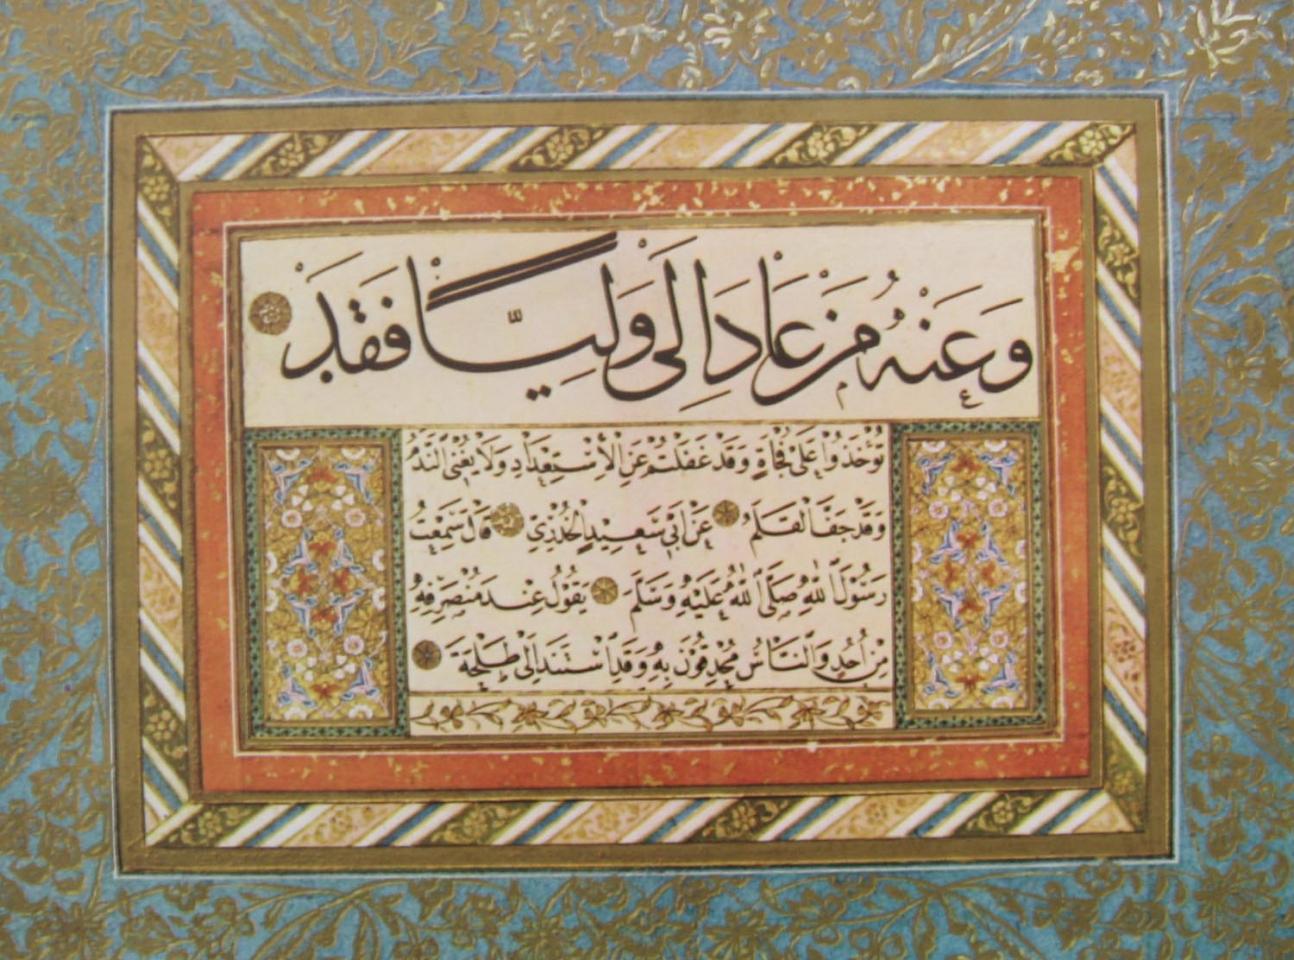 وَعَنْهُ مَنْ عَادَا لِي وَلِيًّا فَقَدْ
تُؤْخَذُوا عَلَى فُجَاةٍ وَقَدْ غَفَلْتُمْ عَنِ الْاِسْتِعْدَادِ وَلَا يُغْنِى النَّدَمُ
وَقَدْ جَفَّ الْقَلَمُ عَنْ اَبِى سَعِيدٍ الْخُدْرِىِّ قَالَ سَمِعْتُ
رَسُولَ اللّٰهِ صَلَّى اللّٰهُ عَلَيْهِ وَسَلَّمَ يَقُولُ عِنْدَ مُنْصَرَفِهِ
مِنْ اُحُدٍ وَالنَّاسُ مُحْدِقُونَ بِهِ وَقَدِ اسْتَنَدَ اِلَى طَلْحَةَ